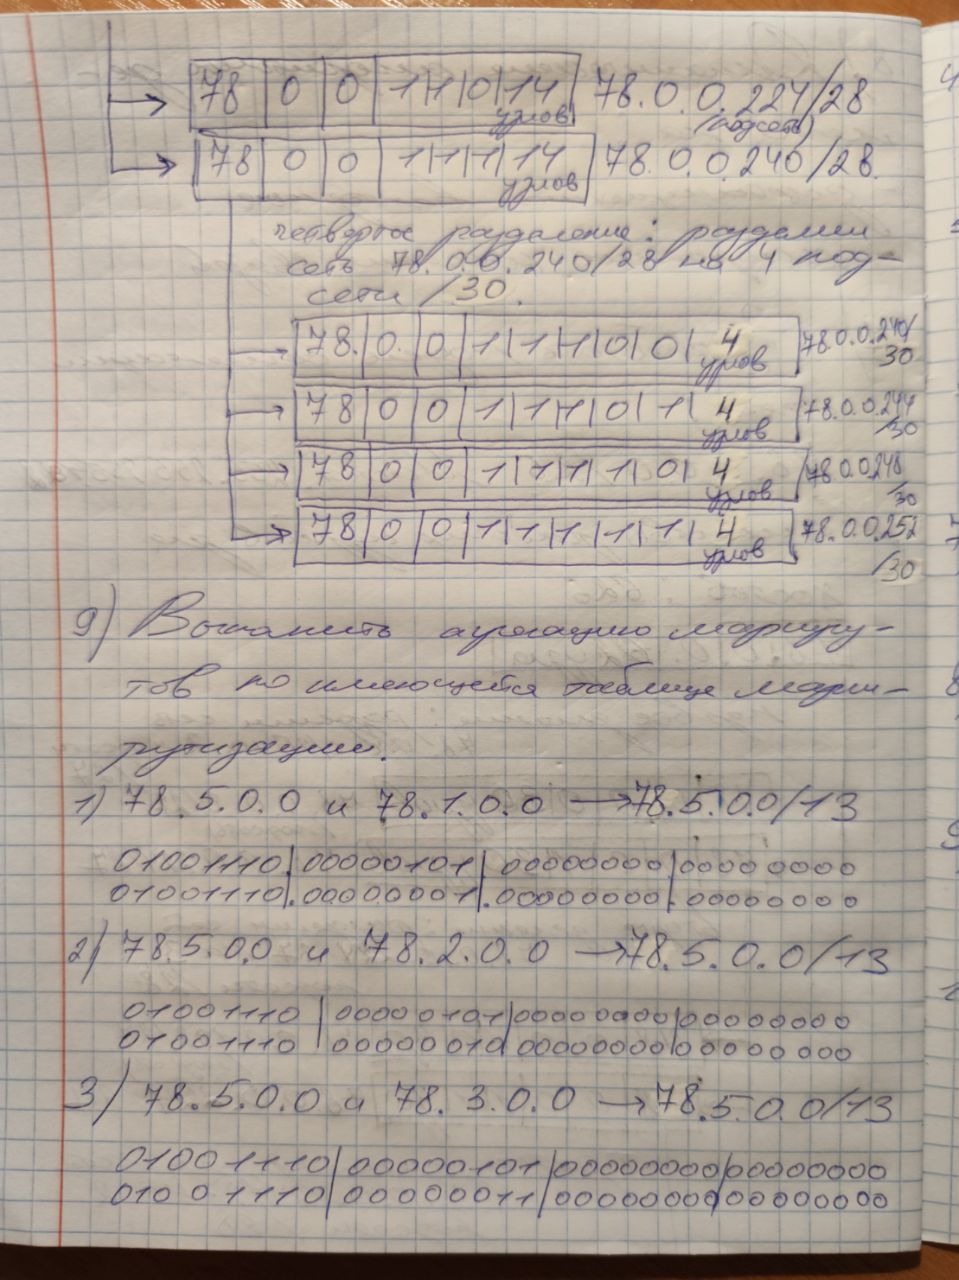 78 0 0 1 1 0 14 узлов 78.0.0.224/28 (подсеть)
78 0 0 1 1 1 14 узлов 78.0.0.240/28.
четвертое разделение: разделим
сеть 78.0.0.240/28 на 4 под-
сети /30.
78. 0. 0 1 1 1 0 0 4 узлов 78.0.0.240/30
78 0 0 1 1 1 0 1 4 узлов 78.0.0.244/30
78 0 0 1 1 1 1 0 4 узлов 78.0.0.248/30
78 0 0 1 1 1 1 1 4 узлов 78.0.0.252/30
9) Выполнить агрегацию маршру-
тов по имеющейся таблице марш-
рутизации.
1) 78.5.0.0 и 78.1.0.0 → 78.5.0.0/13
01001110.00000101.00000000.00000000
01001110.00000001.00000000.00000000
2) 78.5.0.0 и 78.2.0.0 → 78.5.0.0/13
01001110 00000101 00000000 00000000
01001110 00000010 00000000 00000000
3) 78.5.0.0 и 78.3.0.0 → 78.5.0.0/13
01001110 00000101 00000000 00000000
01001110 00000011 00000000 00000000